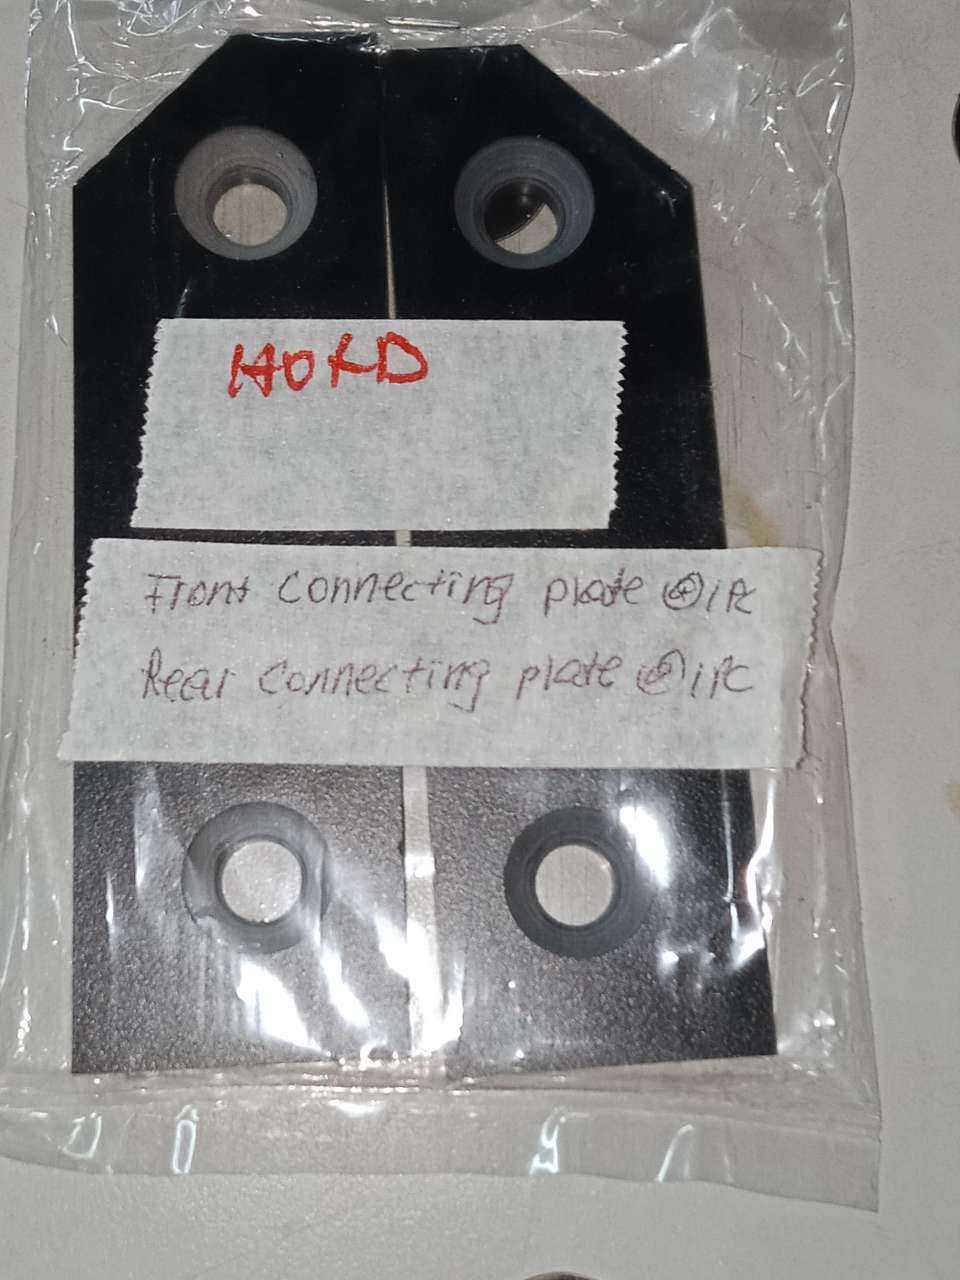 HOLD
Front connecting plate 1 PC
Rear connecting plate 1 PC